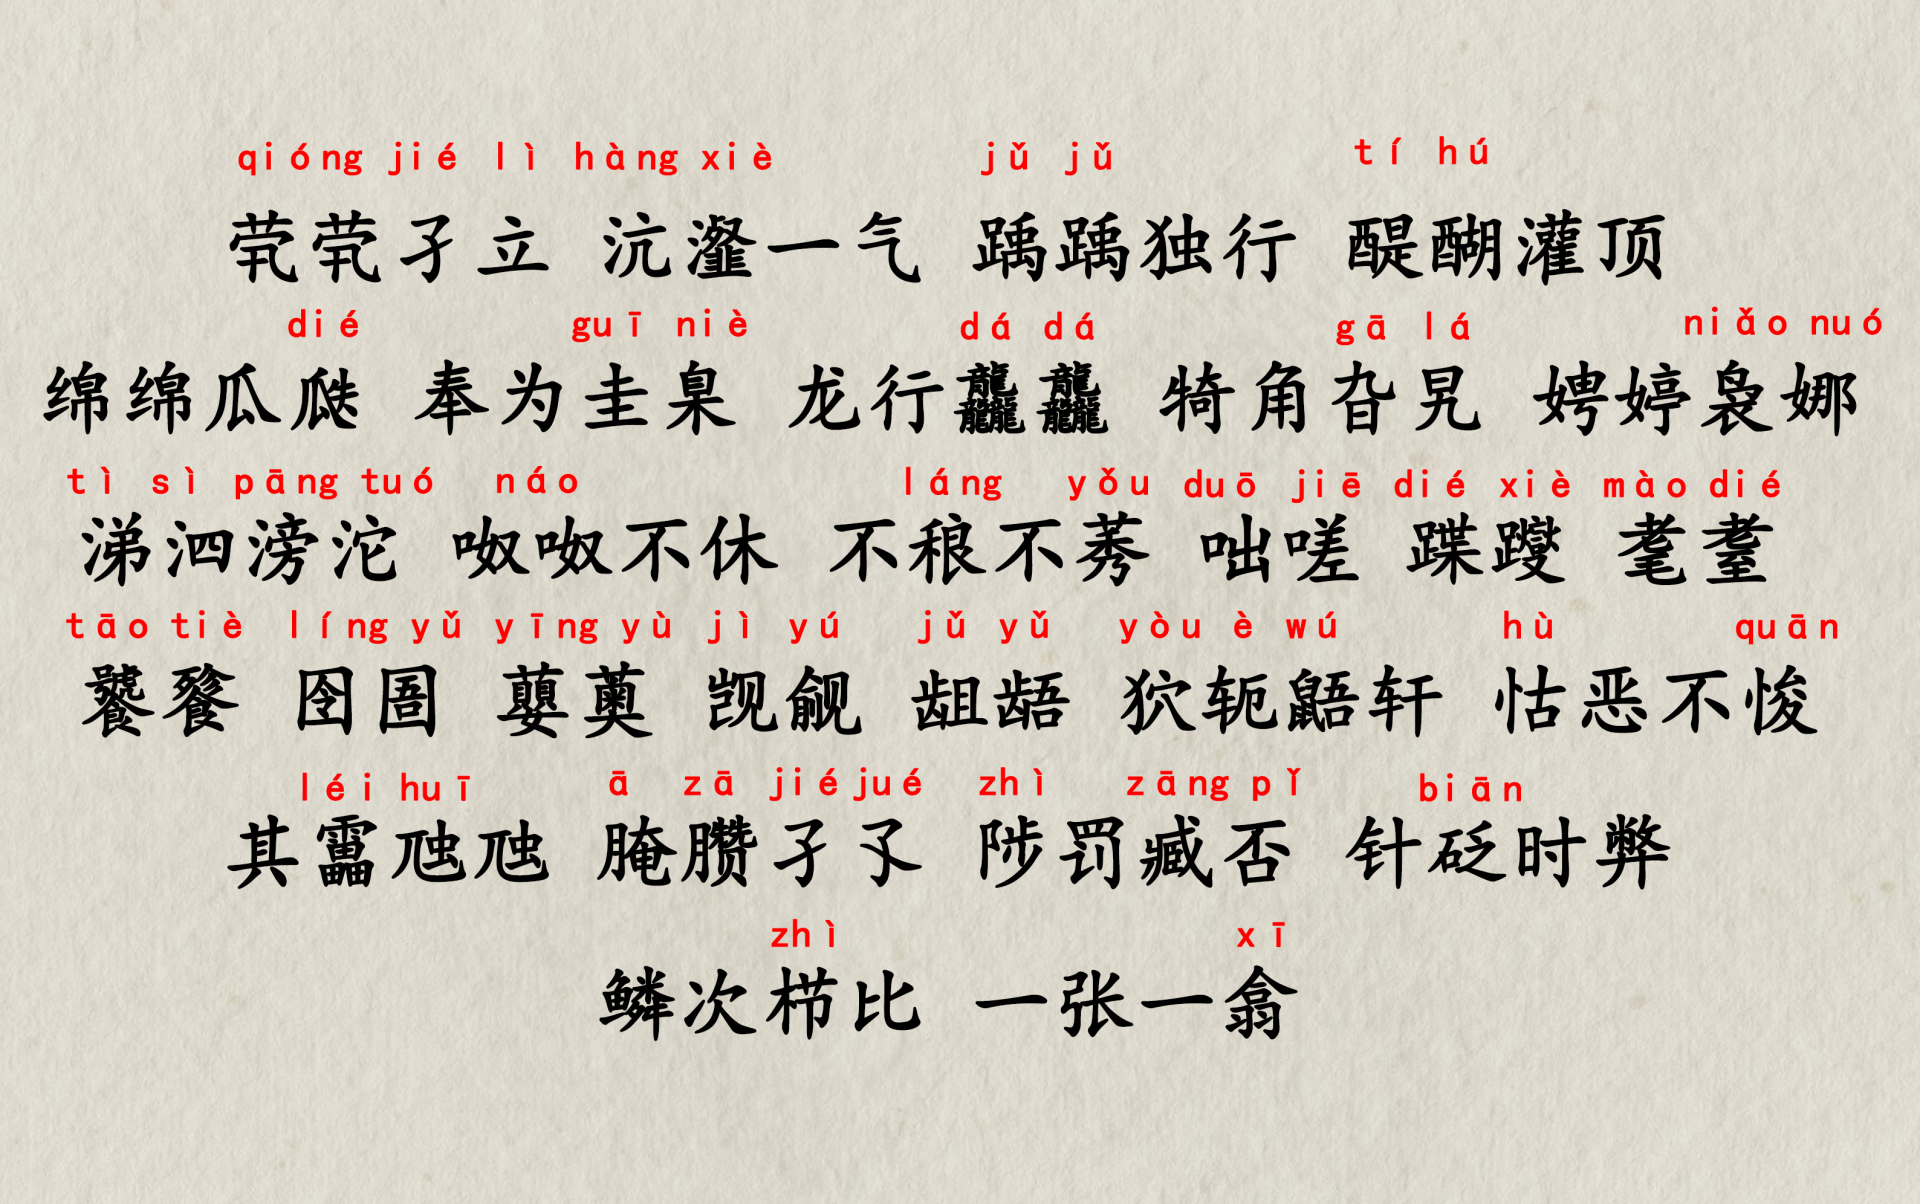 qióng jié lì hàng xiè jǔ jǔ tí hú
茕茕孑立 沆瀣一气 踽踽独行 醍醐灌顶
dié guī niè dá dá gā lá niǎo nuó
绵绵瓜瓞 奉为圭臬 龙行龘龘 犄角旮旯 娉婷袅娜
tì sì pāng tuó náo láng yǒu duō jiē dié xiè mào dié
涕泗滂沱 呶呶不休 不稂不莠 咄嗟 蹀躞 耄耋
tāo tiè líng yǔ yīng yù jì yú jǔ yǔ yòu è wú hù quān
饕餮 囹圄 蘡薁 觊觎 龃龉 狖轭鼯轩 怙恶不悛
léi huī ā zā jié jué zhì zāng pǐ biān
其靁虺虺 腌臢孑孓 陟罚臧否 针砭时弊
zhì xī
鳞次栉比 一张一翕